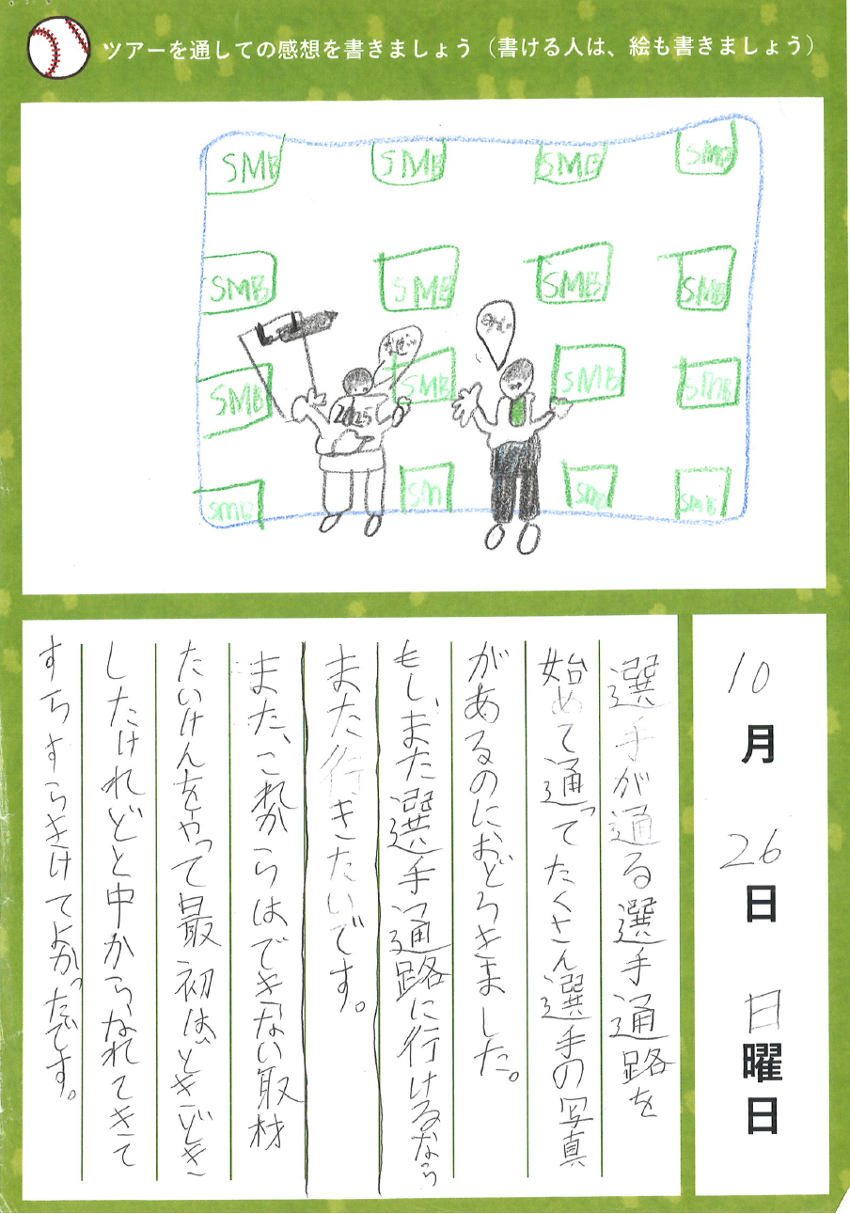 ツアーを通しての感想を書きましょう（書ける人は、絵も書きましょう）
SMB SMB SMB SMB
SMB SMB SMB SMB
2025
SMB SMB SMB SMB
SMB SM SM SMB
10月26日日曜日
選手が通る選手通路を
始めて通ってたくさん選手の写真
があるのにおどろきました。
もし、また選手通路に行けるなら
また行きたいです。
また、これからはできない取材
たいけんをやって最初は、どきどき
したけれどと中からなれてきて
すらすらきけてよかったです。